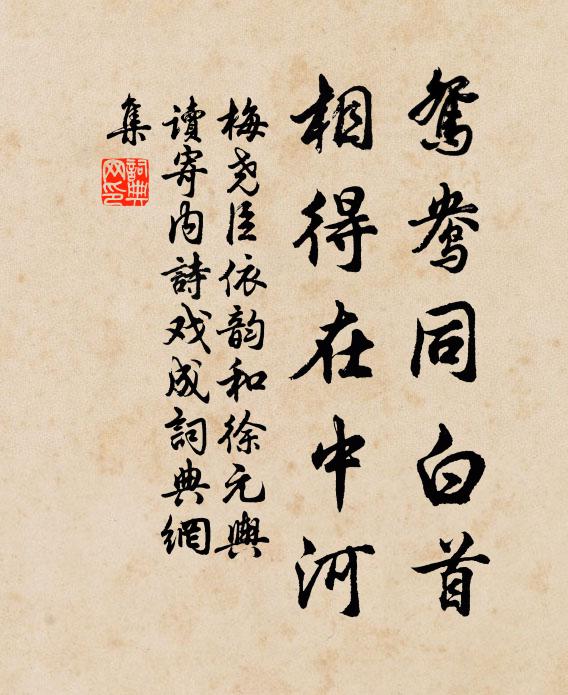 鸳鸯同白首
相得在中河
梅尧臣依韵和徐元輿
讀寄内詩戏成詞典網
集
詞典
网印